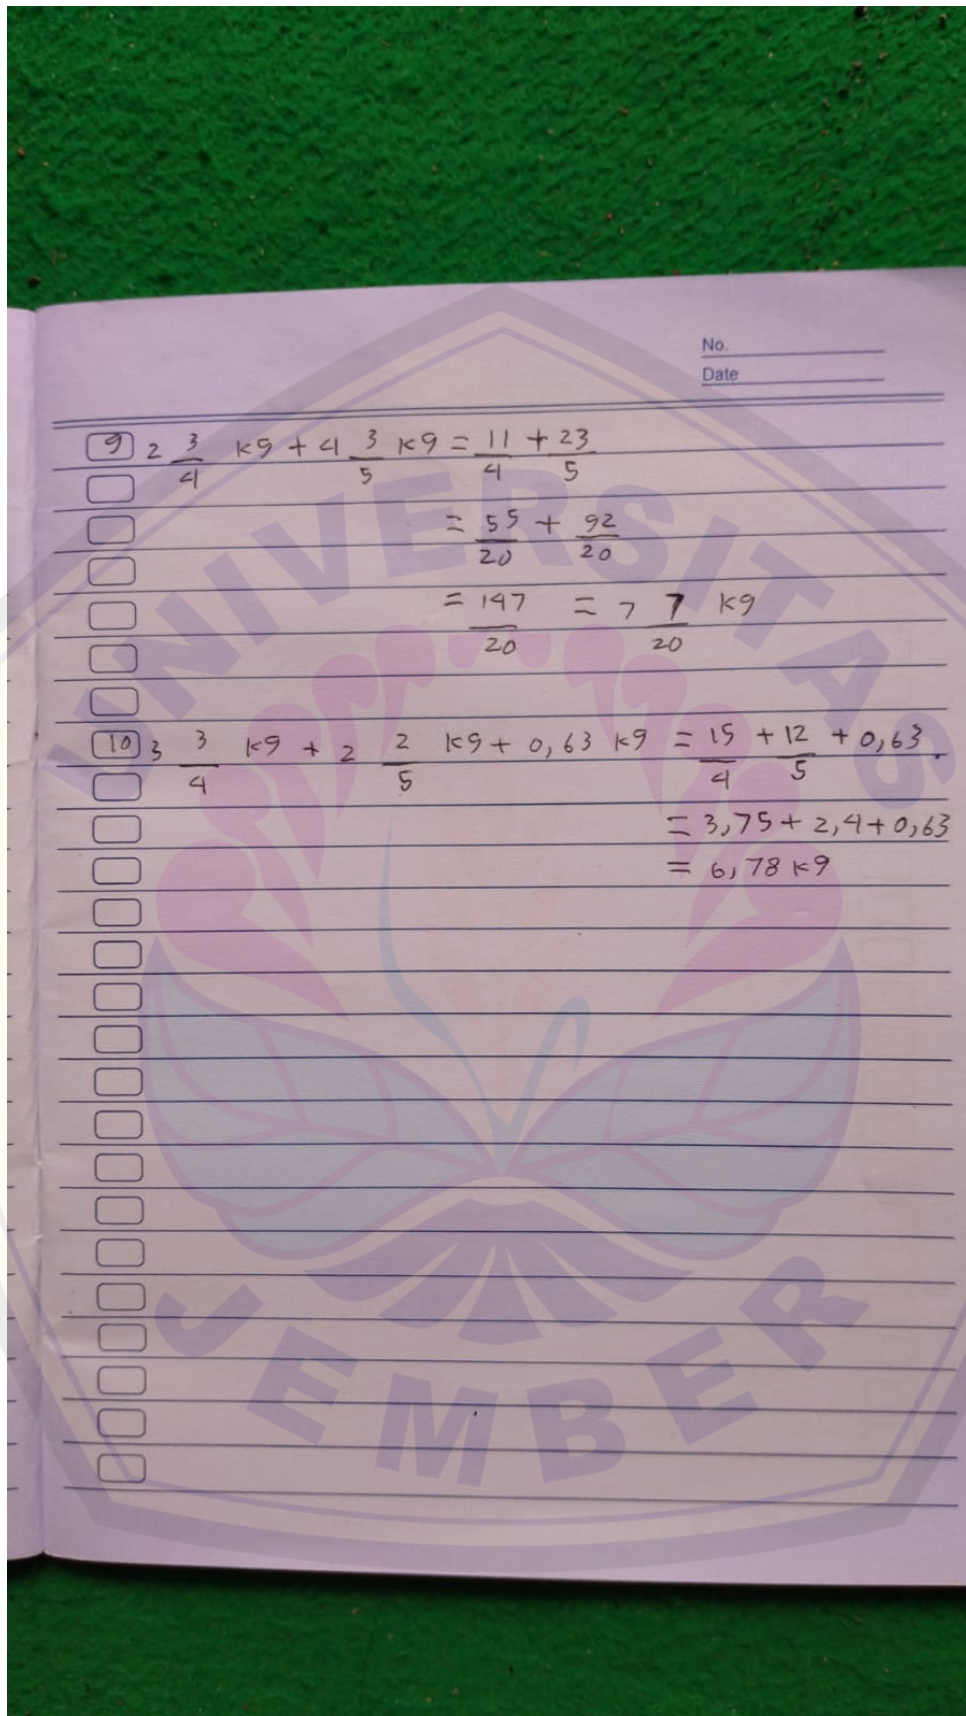 No.
Date
9 2 3/4 kg + 4 3/5 kg = 11/4 + 23/5
= 55/20 + 92/20
= 147/20 = 7 7/20 kg
10 3 3/4 kg + 2 2/5 kg + 0,63 kg = 15/4 + 12/5 + 0,63.
= 3,75 + 2,4 + 0,63
= 6,78 kg
UNIVERSITAS
JEMBER